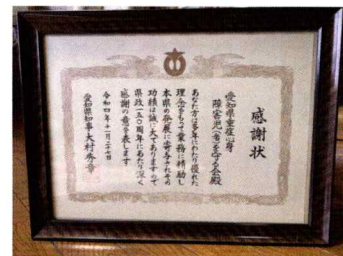 感謝状
愛知県重症心身
障害児(者)を守る会殿
あなた方は多年にわたり優れた
理念をもって業務に精励し
本県の発展に寄与されその
功績は誠に大でありますので
県政一五〇周年にあたり深く
感謝の意を表します
令和四年十一月二十七日
愛知県知事大村秀章